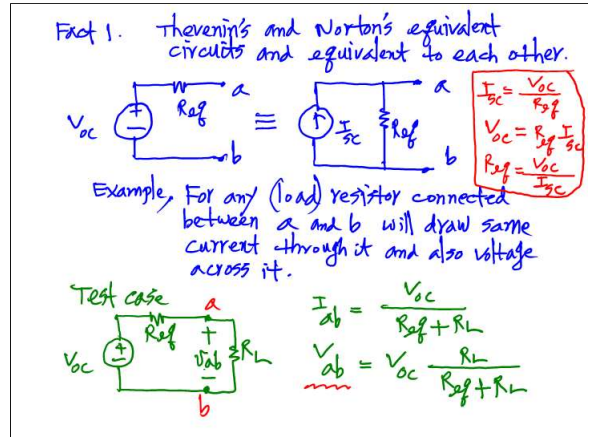 Fact 1. Thevenin's and Norton's equivalent
circuits and equivalent to each other.
Voc + - Req a b ≡ Isc Req a b
Isc = Voc / Req
Voc = Req Isc
Req = Voc / Isc
Example, For any (load) resistor connected
between a and b will draw same
current through it and also voltage
across it.
Test case
Voc + - Req a + Vab - RL b
Iab = Voc / Req + RL
Vab = Voc RL / Req + RL